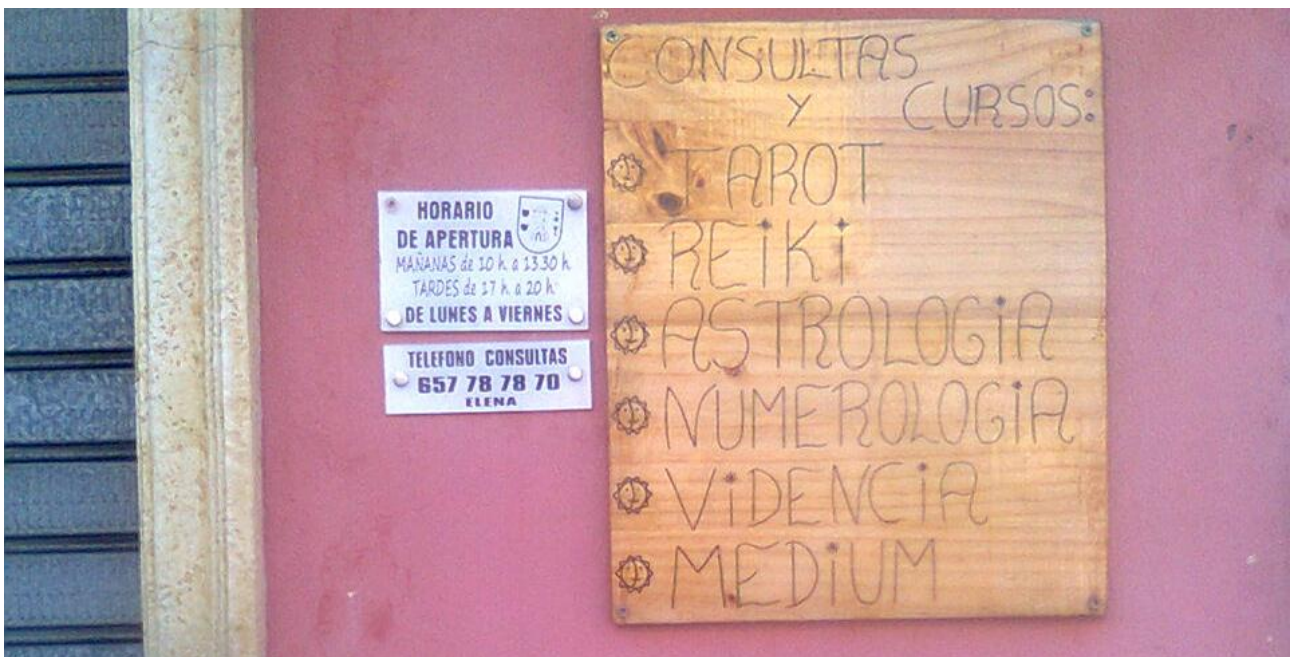 HORARIO
DE APERTURA
MAÑANAS de 10 h. a 13.30 h.
TARDES de 17 h. a 20 h.
DE LUNES A VIERNES
TELEFONO CONSULTAS
657 78 78 70
ELENA
CONSULTAS
Y CURSOS:
TAROT
REiKi
ASTROLOGiA
NUMEROLOGiA
ViDENCiA
MEDiUM